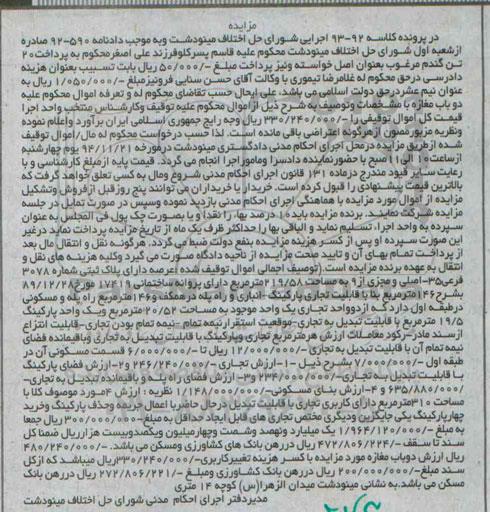 مزایده
در پرونده کلاسه ۹۲-۹۳ اجرایی شورای حل اختلاف مینودشت وبه موجب دادنامه ۵۹۰-۹۲ صادره
ازشعبه اول شورای حل اختلاف مینودشت محکوم علیه قاسم پسرکلوفرزند علی اصغرمحکوم به پرداخت۲۰
تن گندم مرغوب بعنوان اصل خواسته ونیز پرداخت مبلغ -/۵۰/۰۰۰ ریال بابت تسبیب بعنوان هزینه
دادرسی درحق محکوم له غلامرضا تیموری با وکالت آقای حسن سنایی فرونیزمبلغ -/۱/۰۵۰/۰۰۰ به
عنوان نیم عشردرحق دولت اسلامی می باشد، علی ایحال حسب تقاضای محکوم له و تعرفه اموال محکوم علیه
دو باب مغازه با مشخصات وتوصیف به شرح ذیل ازاموال محکوم علیه توقیف وکارشناس منتخب واحد اجرا
قیمت کل اموال توقیفی را -/۳۳۰/۲۴۰/۰۰۰ ریال وجه رایج جمهوری اسلامی ایران برآورد واعلام نموده
ونظریه مزبورمصون ازهرگونه اعتراضی باقی مانده است. لذا حسب درخواست محکوم له مال/اموال توقیف
شده ازطریق مزایده درمحل اجرای احکام مدنی دادگستری مینودشت درمورخه ۹۴/۱۱/۲۱ یوم چهارشنبه
ازساعت۱۰ الی۱۱صبح با حضورنماینده دادسرا وماموراجرا انجام می گردد. قیمت پایه ازمبلغ کارشناسی و با
رعایت سایر قیود مندرج درماده ۱۳۱ قانون اجرای احکام مدنی شروع ومال به کسی تعلق خواهد گرفت که
بالاترین قیمت پیشنهادی را قبول کرده است. خریدار یا خریداران می توانند پنج روز قبل ازفروش وتشکیل
مزایده از اموال مورد مزایده با هماهنگی اجرای احکام مدنی بازدید نموده وسپس در صورت تمایل در جلسه
مزایده شرکت نمایند. برنده مزایده باید۱۰ درصد بها، را نقدا و یا بصورت چک پول فی المجلس به عنوان
سپرده به واحد اجرا، تسلیم نماید و الباقی بها را حداکثر ظرف یک ماه از تاریخ مزایده پرداخت نماید درغیر
این صورت سپرده او پس از کسر هزینه مزایده بنفع دولت ضبط می گردد. هرگونه نقل و انتقال مال بعد
از پرداخت تمام بهای آن و تایید صحت مزایده از ناحیه دادگاه صورت می گیرد وکلیه هزینه های نقل و
انتقال به عهده برنده مزایده است.(توصیف اجمالی اموال توقیف شده :عرصه دارای پلاک ثبتی شماره ۳۰۷۸
فرعی۳۵-اصلی و مجزی از۹ به مساحت ۲۱۹/۵۸مترمربع دارای پروانه ساختمانی ۱۷۴۱۹ مورخ۸۹/۱۲/۲۸
بشرح۱۴۶مترمربع بنا با قابلیت تجاری پارکینگ -انباری و راه پله در همکف و۱۴۶مترمربع راه پله و مسکونی
درطبقه اول دارد که ازدوواحد تجاری یک واحد موجود به مساحت ۲۰/۵۲ مترمربع ویک واحد پارکینگ
۱۹/۵ مترمربع با قابلیت تبدیل به تجاری-موقعیت استقرارنیمه تمام -نیمه تمام بودن تجاری-قابلیت انتزاع
ازسند مادر-رکود معاملات ارزش هرمترمربع تجاری وپارکینگ با قابلیت تبدیل به تجاری وباقیمانده فضای
نیمه تمام آن با قابلیت تبدیل به تجاری -/۱۲/۰۰۰/۰۰۰ ریال تا -/۶/۰۰۰/۰۰۰ قسمت مسکونی آن در
طبقه اول -/۷/۰۰۰/۰۰۰ بشرح ذیل -۱-ارزش تجاری -/۲۴۶/۲۴۰/۰۰۰ و۲-ارزش فضای پارکینگ
با قابلیت تبدیل به تجاری-/۲۳۴/۰۰۰/۰۰۰ و۳- ارزش فضای راه پله و باقیمانده تبدیل به تجاری-
/۶۳۵/۸۸۰/۰۰۰ و ۴-ارزش بنای مسکونی-/۱/۱۴۸/۰۰۰/۰۰۰ نظریه : ارزش ۴مورد موصوف کلا با
مساحت ۳۱۰مترمربع دارای کاربری تجاری با قابلیت تبدیل درحال حاضربا اعمال جریمه وحذف پارکینگ وخرید
چهارپارکینگ یکی جایگزین ودیگری مختص تجاری های قابل ایجاد حداقل به مبلغ -/۳۰۰/۰۰۰/۰۰۰ ریال جمعا
به مبلغ -/۱/۹۶۴/۱۲۰/۰۰۰ یک میلیارد ونهصد وشصت وچهارمیلیون ویکصدوبیست هزارریال ضمنا کل
سند تا سقف -/۴۷۲/۸۰۶/۲۲۴ ریال دررهن بانک های کشاورزی ومسکن می باشد. -/۴۸۰/۲۴۰/۰۰۰
ریال ارزش دوباب مغازه مورد مزایده با کسر هزینه تغییرکاربری-/۳۳۰/۲۴۰/۰۰۰ریال میباشد که ازکل
سند مبلغ-/۲۰۰/۰۰۰/۰۰۰ ریال دررهن بانک کشاورزی ومبلغ -/۲۷۲/۸۰۶/۲۲۱ ریال دررهن بانک
مسکن می باشد.به نشانی مینودشت میدان الزهرا(س) کوچه ۱۴ متری
مدیردفتر اجرای احکام مدنی شورای حل اختلاف مینودشت